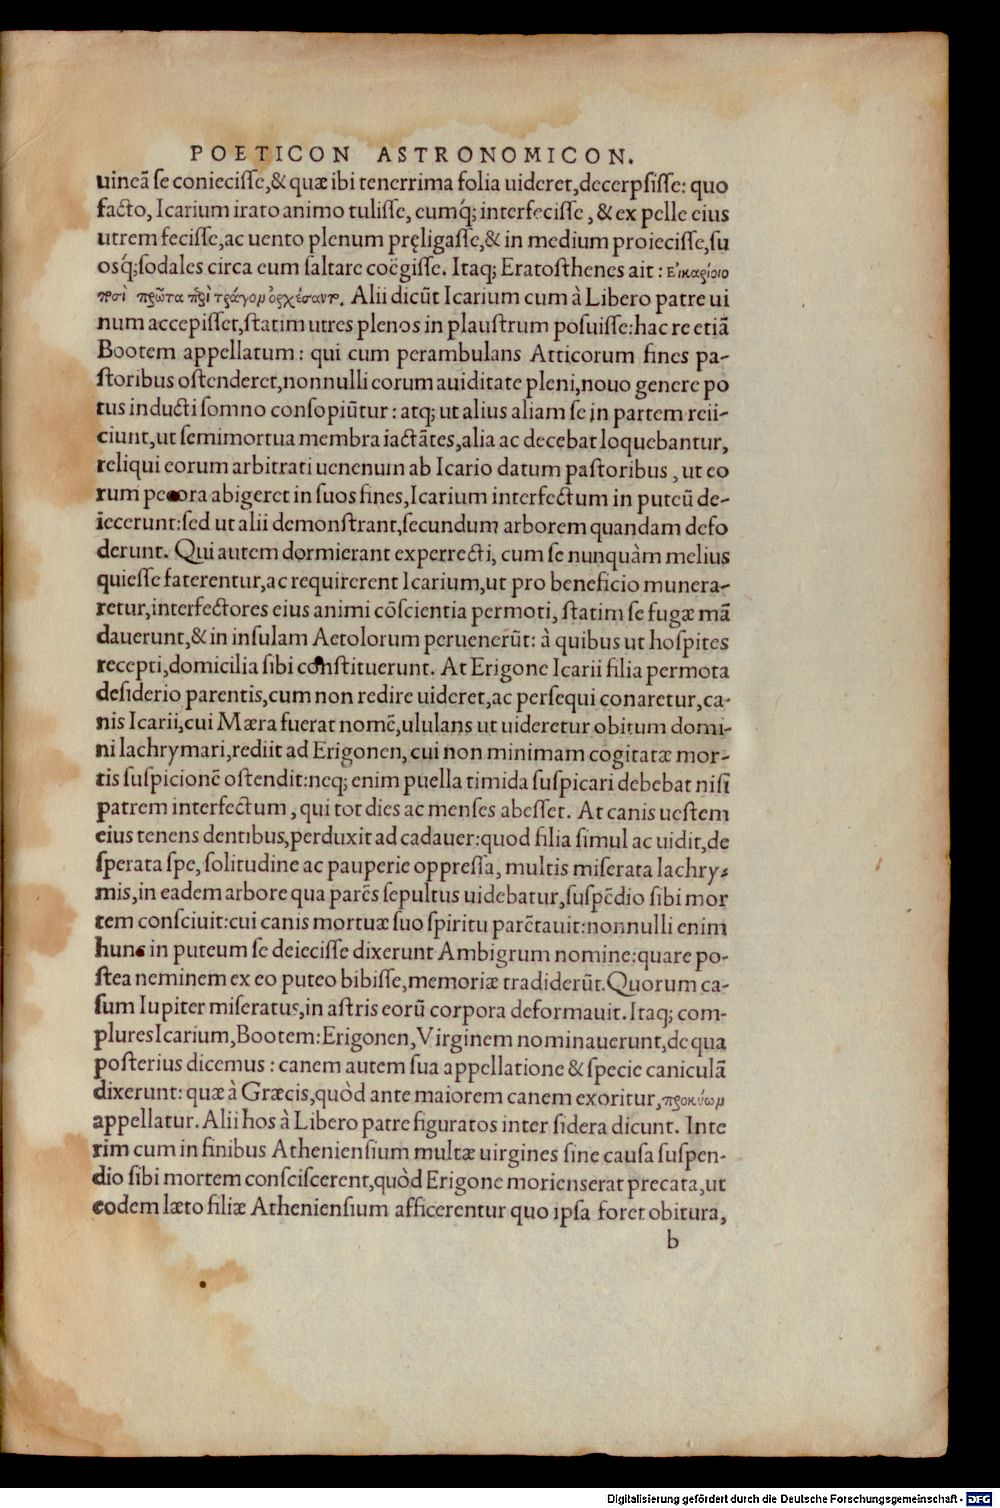 POETICON ASTRONOMICON.
uineã se coniecisse,& quæ ibi tenerrima folia uideret,decerpsisse: quo
facto, Icarium irato animo tulisse, eumq́; interfecisse, & ex pelle eius
utrem fecisse,ac uento plenum pręligasse,& in medium proiecisse,su
osq́;sodales circa eum saltare coëgisse. Itaq; Eratosthenes ait :
πρῶτα τράγον Alii dicũt Icarium cum à Libero patre ui
num accepisset,statim utres plenos in plaustrum posuisse:hac re etiã
Bootem appellatum: qui cum perambulans Atticorum fines pa-
storibus ostenderet,nonnulli eorum auiditate pleni,nouo genere po
tus inducti somno consopiũtur: atq; ut alius aliam se in partem reii-
ciunt,ut semimortua membra iactãtes,alia ac decebat loquebantur,
reliqui eorum arbitrati uenenum ab Icario datum pastoribus, ut eo
rum pecora abigeret in suos fines,Icarium interfectum in puteũ de-
iecerunt:sed ut alii demonstrant,secundum arborem quandam defo
derunt. Qui autem dormierant experrecti, cum se nunquàm melius
quiesse faterentur,ac requirerent Icarium,ut pro beneficio munera-
retur,interfectores eius animi cõscientia permoti, statim se fugæ mã
dauerunt,& in insulam Aetolorum peruenerũt: à quibus ut hospites
recepti,domicilia sibi constituerunt. At Erigone Icarii filia permota
desiderio parentis,cum non redire uideret,ac persequi conaretur,ca-
nis Icarii,cui Mæra fuerat nomẽ,ululans ut uideretur obitum domi-
ni lachrymari,rediit ad Erigonen, cui non minimam cogitatæ mor-
tis suspicionẽ ostendit:neq; enim puella timida suspicari debebat nisi
patrem interfectum, qui tot dies ac menses abesset. At canis uestem
eius tenens dentibus,perduxit ad cadauer:quod filia simul ac uidit,de
sperata spe, solitudine ac pauperie oppressa, multis miserata lachry-
mis,in eadem arbore qua parẽs sepultus uidebatur,suspẽdio sibi mor
tem consciuit:cui canis mortuæ suo spiritu parẽtauit:nonnulli enim
hunc in puteum se deiecisse dixerunt Ambigrum nomine:quare po-
stea neminem ex eo puteo bibisse,memoriæ tradiderũt.Quorum ca-
sum Iupiter miseratus,in astris eorũ corpora deformauit.Itaq; com-
plures Icarium, Bootem:Erigonen, Virginem nominauerunt,de qua
posterius dicemus: canem autem sua appellatione & specie caniculã
dixerunt: quæ à Græcis,quòd ante maiorem canem exoritur,προκύωμ
appellatur. Alii hos à Libero patre figuratos inter sidera dicunt. Inte
rim cum in finibus Atheniensium multæ uirgines sine causa suspen-
dio sibi mortem consciscerent,quòd Erigone morienserat precata,ut
eodem læto filiæ Atheniensium afficerentur quo ipsa foret obitura,
b
Digitalisierung gefördert durch die Deutsche Forschungsgemeinschaft - DFG